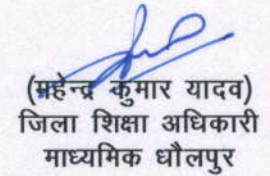 (महेन्द्र कुमार यादव)
जिला शिक्षा अधिकारी
माध्यमिक धौलपुर